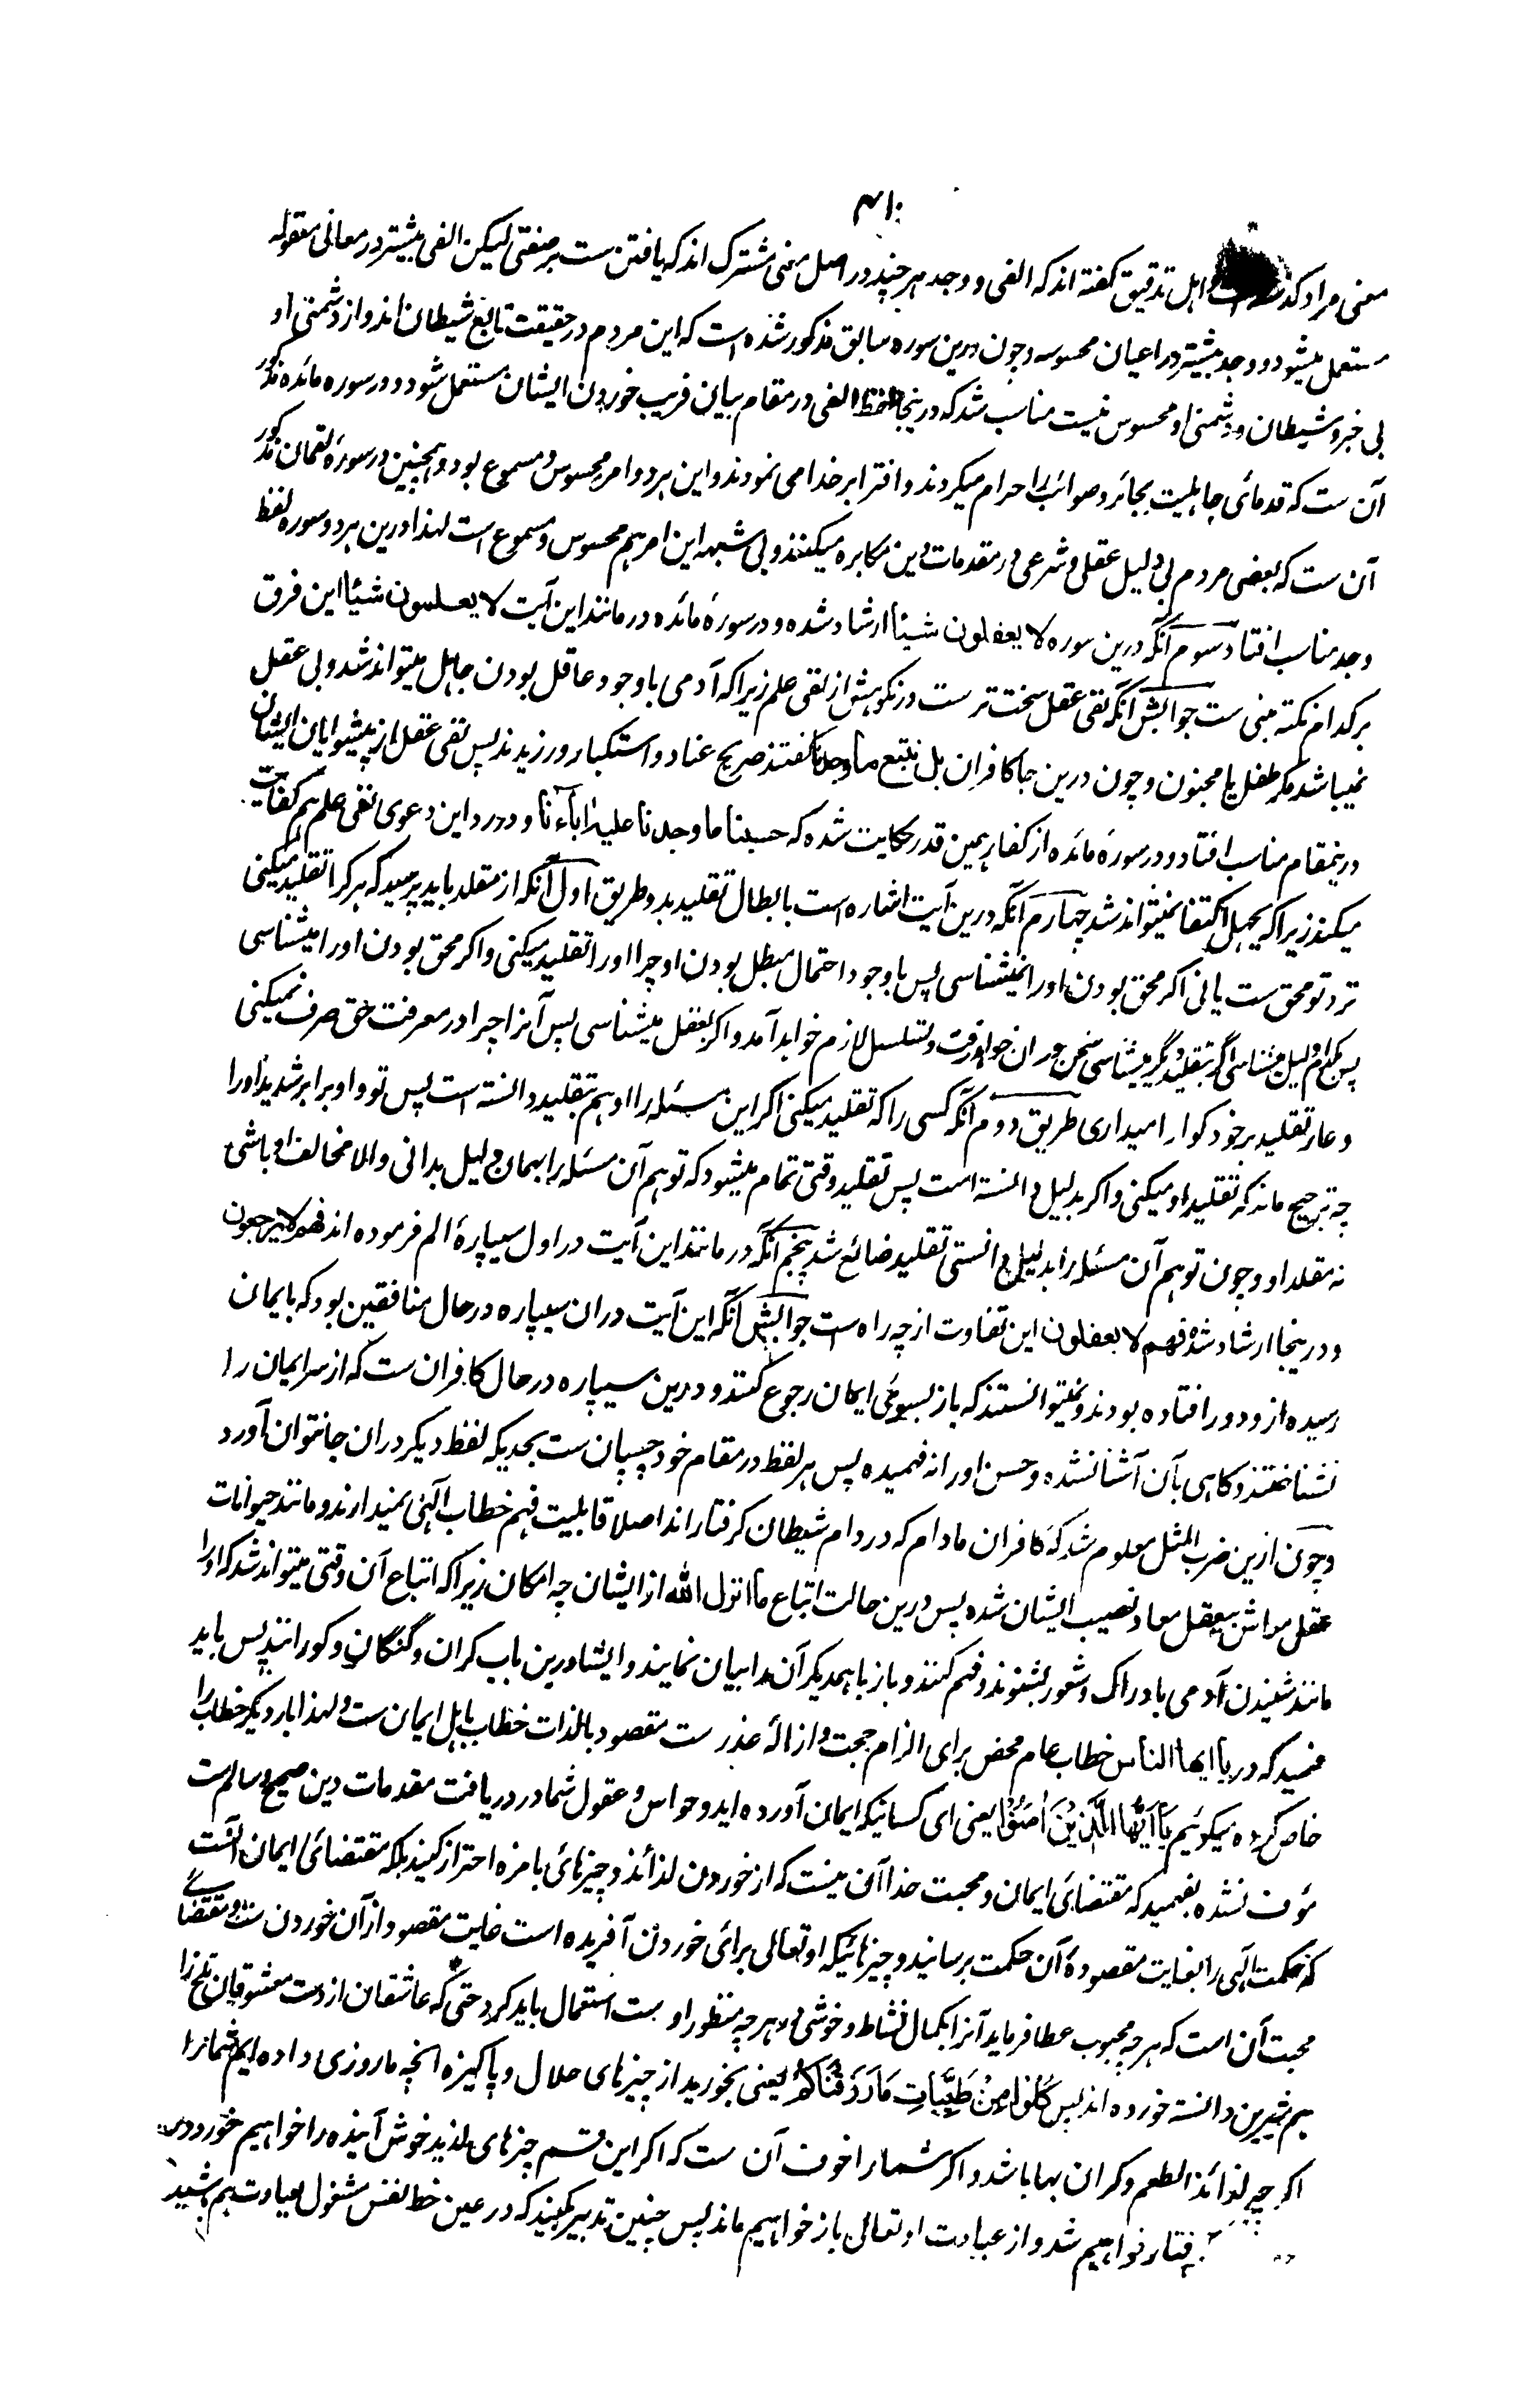 ۴۱۰
معنی مراد گذشته است و اهل تدقیق گفته اند که الفی و وجد هر چند در اصل معنی مشترک اند که یافتن ست بر صفتی لیکن الفی بیشتر در معانی معقوله
مستعمل میشود و وجد بیشتر در اعیان محسوسه و چون درین سوره سابق مذکور شده است که این مردم در حقیقت تابع شیطان اند و از دشمنی او
بی خبر و شیطان و دشمنی او محسوس نیست مناسب شد که درینجا لفظ الفی در مقام بیان فریب خوردن ایشان مستعمل شود و در سوره مائده مذکور
آن ست که قدمائی جاهلیت بحائر و سوائب را حرام میکردند و افترا بر خدا می نمودند و این هر دو امر محسوس و مسموع بود و همچنین در سورۀ لقمان مذکور
آن ست که بعضی مردم بی دلیل عقلی و شرعی در مقدمات دین مکابره میکنند و بی شبهه این امر هم محسوس و مسموع است لهذا درین هر دو سوره لفظ
وجد مناسب افتاد سوم آنکه درین سوره لا یعقلون شیئا ارشاد شده و در سورۀ مائده در مانند این آیت لا یعلمون شیئا این فرق
بر کدام نکته مبنی ست جوابش آنکه نفی عقل سخت تر ست در نکوهش از نفی علم زیرا که آدمی با وجود عاقل بودن جاهل میتواند شد و بی عقل
نمیباشد مگر طفل یا مجنون و چون درین جا کافران بل نتبع ما وجدنا گفتند صریح عناد و استکبار ورزیدند پس نفی عقل از پیشوایان ایشان
درینمقام مناسب افتاد و در سورۀ مائده از کفار همین قدر حکایت شده که حسبنا ما وجدنا علیه اٰباءنا و در رد این دعوی نفی علم هم کفایت
میکند زیرا که بجهل اکتفا نمیتواند شد چهارم آنکه درین آیت اشاره است بابطال تقلید بدو طریق اول آنکه از مقلد باید پرسید که هر کرا تقلید میکنی
نزد تو محق ست یا نی اگر محق بودن او را نمیشناسی پس با وجود احتمال مبطل بودن او چرا او را تقلید میکنی و اگر محق بودن او را میشناسی
پس بکدام دلیل میشناسی اگر بتقلید دیگر میشناسی سخن دران خواهد رفت و تسلسل لازم خواهد آمد و اگر بعقل میشناسی پس آنرا چرا در معرفت حق صرف نمیکنی
و عار تقلید بر خود گوارا میداری طریق دوم آنکه کسی را که تقلید میکنی اگر این مسئله را او هم بتقلید دانسته است پس تو و او برابر شدید او را
چه ترجیح ماند که تقلید او میکنی و اگر بدلیل دانسته است پس تقلید وقتی تمام میشود که تو هم آن مسئله را بهمان دلیل بدانی و الا مخالف او باشی
نه مقلد او و چون تو هم آن مسئله را بدلیل دانستی تقلید ضائع شد پنجم آنکه در مانند این آیت در اول سیپارۀ الم فرموده اند فهم لا یرجعون
و درینجا ارشاد شده فهم لا یعقلون این تفاوت از چه راه ست جوابش آنکه این آیت دران سیپاره در حال منافقین بود که بایمان
رسیده ازو دور افتاده بودند و نمیتوانستند که باز بسوئی ایمان رجوع کنند و درین سیپاره در حال کافران ست که از سر ایمان را
نشناختند و گاهی بآن آشنا نشده و حسن او را نه فهمیده پس هر لفظ در مقام خود چسپان ست بحدیکه لفظ دیگر دران جا نتوان آورد
و چون ازین ضرب المثل معلوم شد که کافران مادام که در دام شیطان گرفتار اند اصلا قابلیت فهم خطاب الٰهی نمیدارند و مانند حیوانات
عقل معاش بیعقل معاد نصیب ایشان شده پس درین حالت اتباع ما انزل الله از ایشان چه امکان زیرا که اتباع آن وقتی میتواند شد که او را
مانند شنیدن آدمی بادراک و شعور بشنوند و فهم کنند و باز با همدیگر آن را بیان نمایند و ایشان درین باب کران و گنگان و کورانند پس باید
فهمید که در یا ایها الناس خطاب عام محض برای الزام حجت و ازالۀ عذر ست مقصود بالذات خطاب باهل ایمان ست و لهذا بار دیگر خطاب را
خاص کرده میگوئیم یَا اَیُّهَا الَّذِیْنَ اٰمَنُوْا یعنی ای کسانیکه ایمان آورده اید و حواس و عقول شما در دریافت مقدمات دین صحیح و سالم ست
مؤف نشده بفهمید که مقتضائ ایمان و محبت خدا آن نیست که از خوردن لذائذ و چیزهائی بامزه احتراز کنید بلکه مقتضائی ایمان آنست
که حکمت الٰهی را بغایت مقصودۀ آن حکمت برسانید و چیزهائیکه او تعالی برائی خوردن آفریده است غایت مقصود از آن خوردن ست و مقتضائے
محبت آن است که هر چه محبوب عطا فرماید آنرا بکمال نشاط و خوشی در هر چه منظور او ست استعمال باید کرد حتی که عاشقان از دست معشوقان تلخ را
هم شیرین دانسته خورده اند پس کُلُوْا مِنْ طَیِّبَاتِ مَا رَزَقْنَاکُمْ یعنی بخورید از چیزهای حلال و پاکیزه آنچه ما روزی داده ایم شما را
اگر چه لذائذ الطعم و گران بها باشد و اگر شما را خوف آن ست که اگر این قسم چیزهای لذیذ خوش آینده را خواهیم خورد در
گرفتار خواهیم شد و از عبادت او تعالی باز خواهیم ماند پس چنین تدبیر کنید که در عین حظ نفس مشغول بعبادت هم باشید